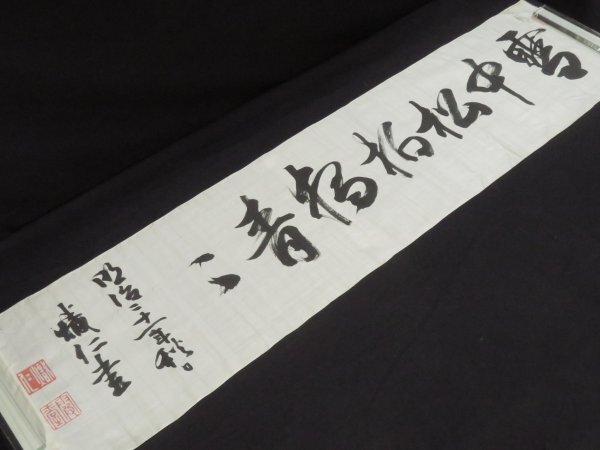 雪中松柏愈青々
明治二十一年秋日
熾仁書